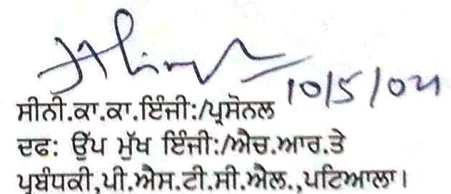 10/5/24
ਸੀਨੀ.ਕਾ.ਕਾ.ਇੰਜੀ:/ਪ੍ਰਸੋਨਲ
ਦਫ: ਉੱਪ ਮੁੱਖ ਇੰਜੀ:/ਐਚ.ਆਰ.ਤੇ
ਪ੍ਰਬੰਧਕੀ,ਪੀ.ਐਸ.ਟੀ.ਸੀ.ਐਲ.,ਪਟਿਆਲਾ।